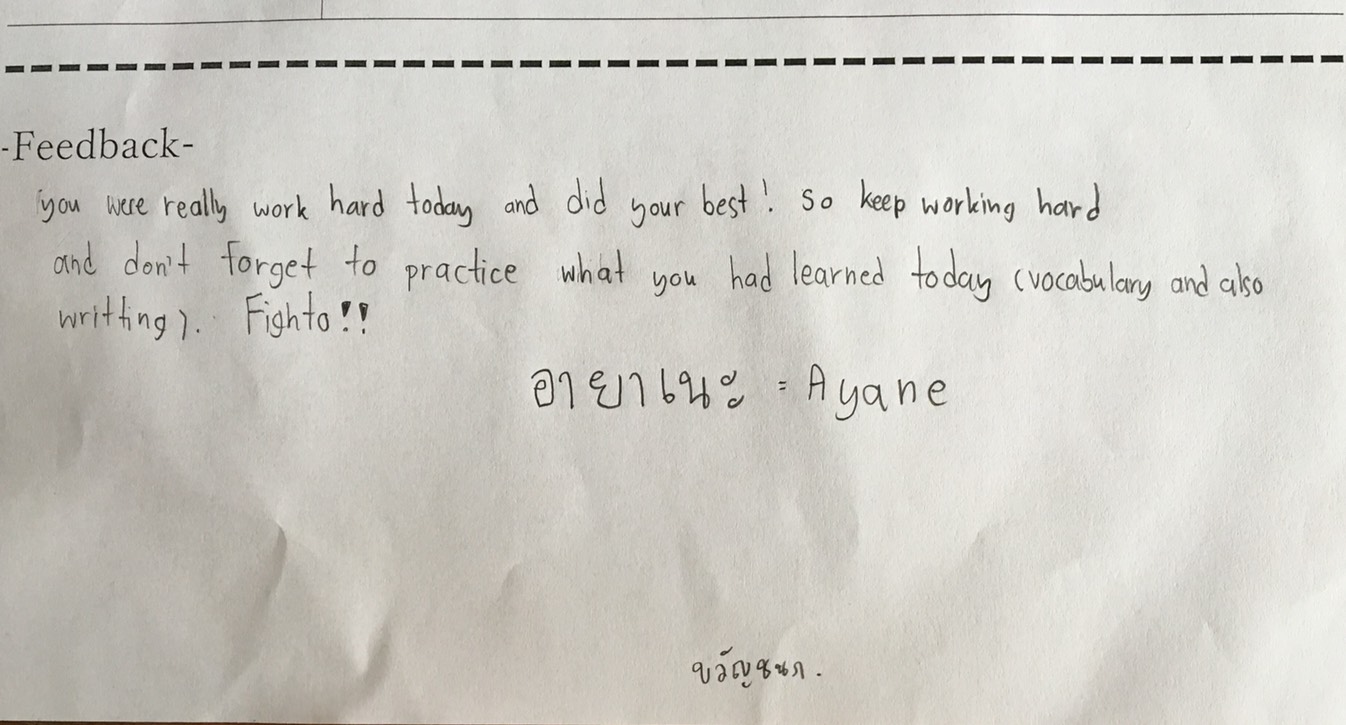 -Feedback-
you were really work hard today and did your best! so keep working hard
and don't forget to practice what you had learned today (vocabulary and also
writting). Fighto!!
อายาเนะ = Ayane
ขวัญชนก.